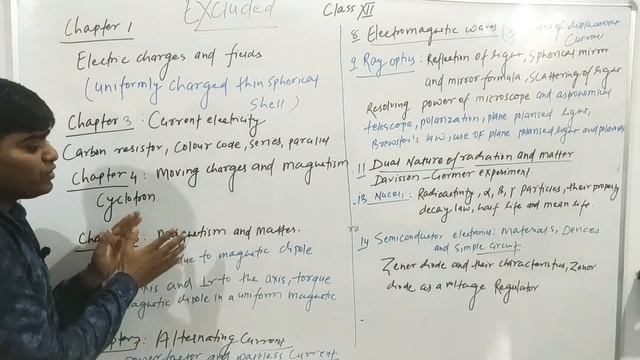 Excluded
Class XII
Chapter 1
Electric charges and fields
(uniformly charged thin spherical
Shell)
Chapter 3 : Current electricity
Carbon resistor, Colour code, series, parallel
Chapter 4 : Moving charges and magnetism
Cyclotron
magnetism and matter.
due to magnetic dipole
axis and ⊥r to the axis, torque
magnetic dipole in a uniform magnetic
Alternating Current
power factor and wattless current
8 Electromagnetic waves of displacement
Current
9 Ray optics : Reflection of light, Spherical mirror
and mirror formula, Scattering of light
Resolving power of microscope and astronomical
telescope, polarization, plane polarised light,
Brewster's law, use of plane polarised light and polaroids
11 Dual Nature of radiation and matter
Davisson-Germer experiment
13 Nuclei : Radioactivity, α, β, γ particles, their property
decay law, half life and mean life.
14 Semiconductor electronics: Materials, Devices
and Simple Circuit
Zener diode and their characteristics, Zenor
diode as a voltage Regulator